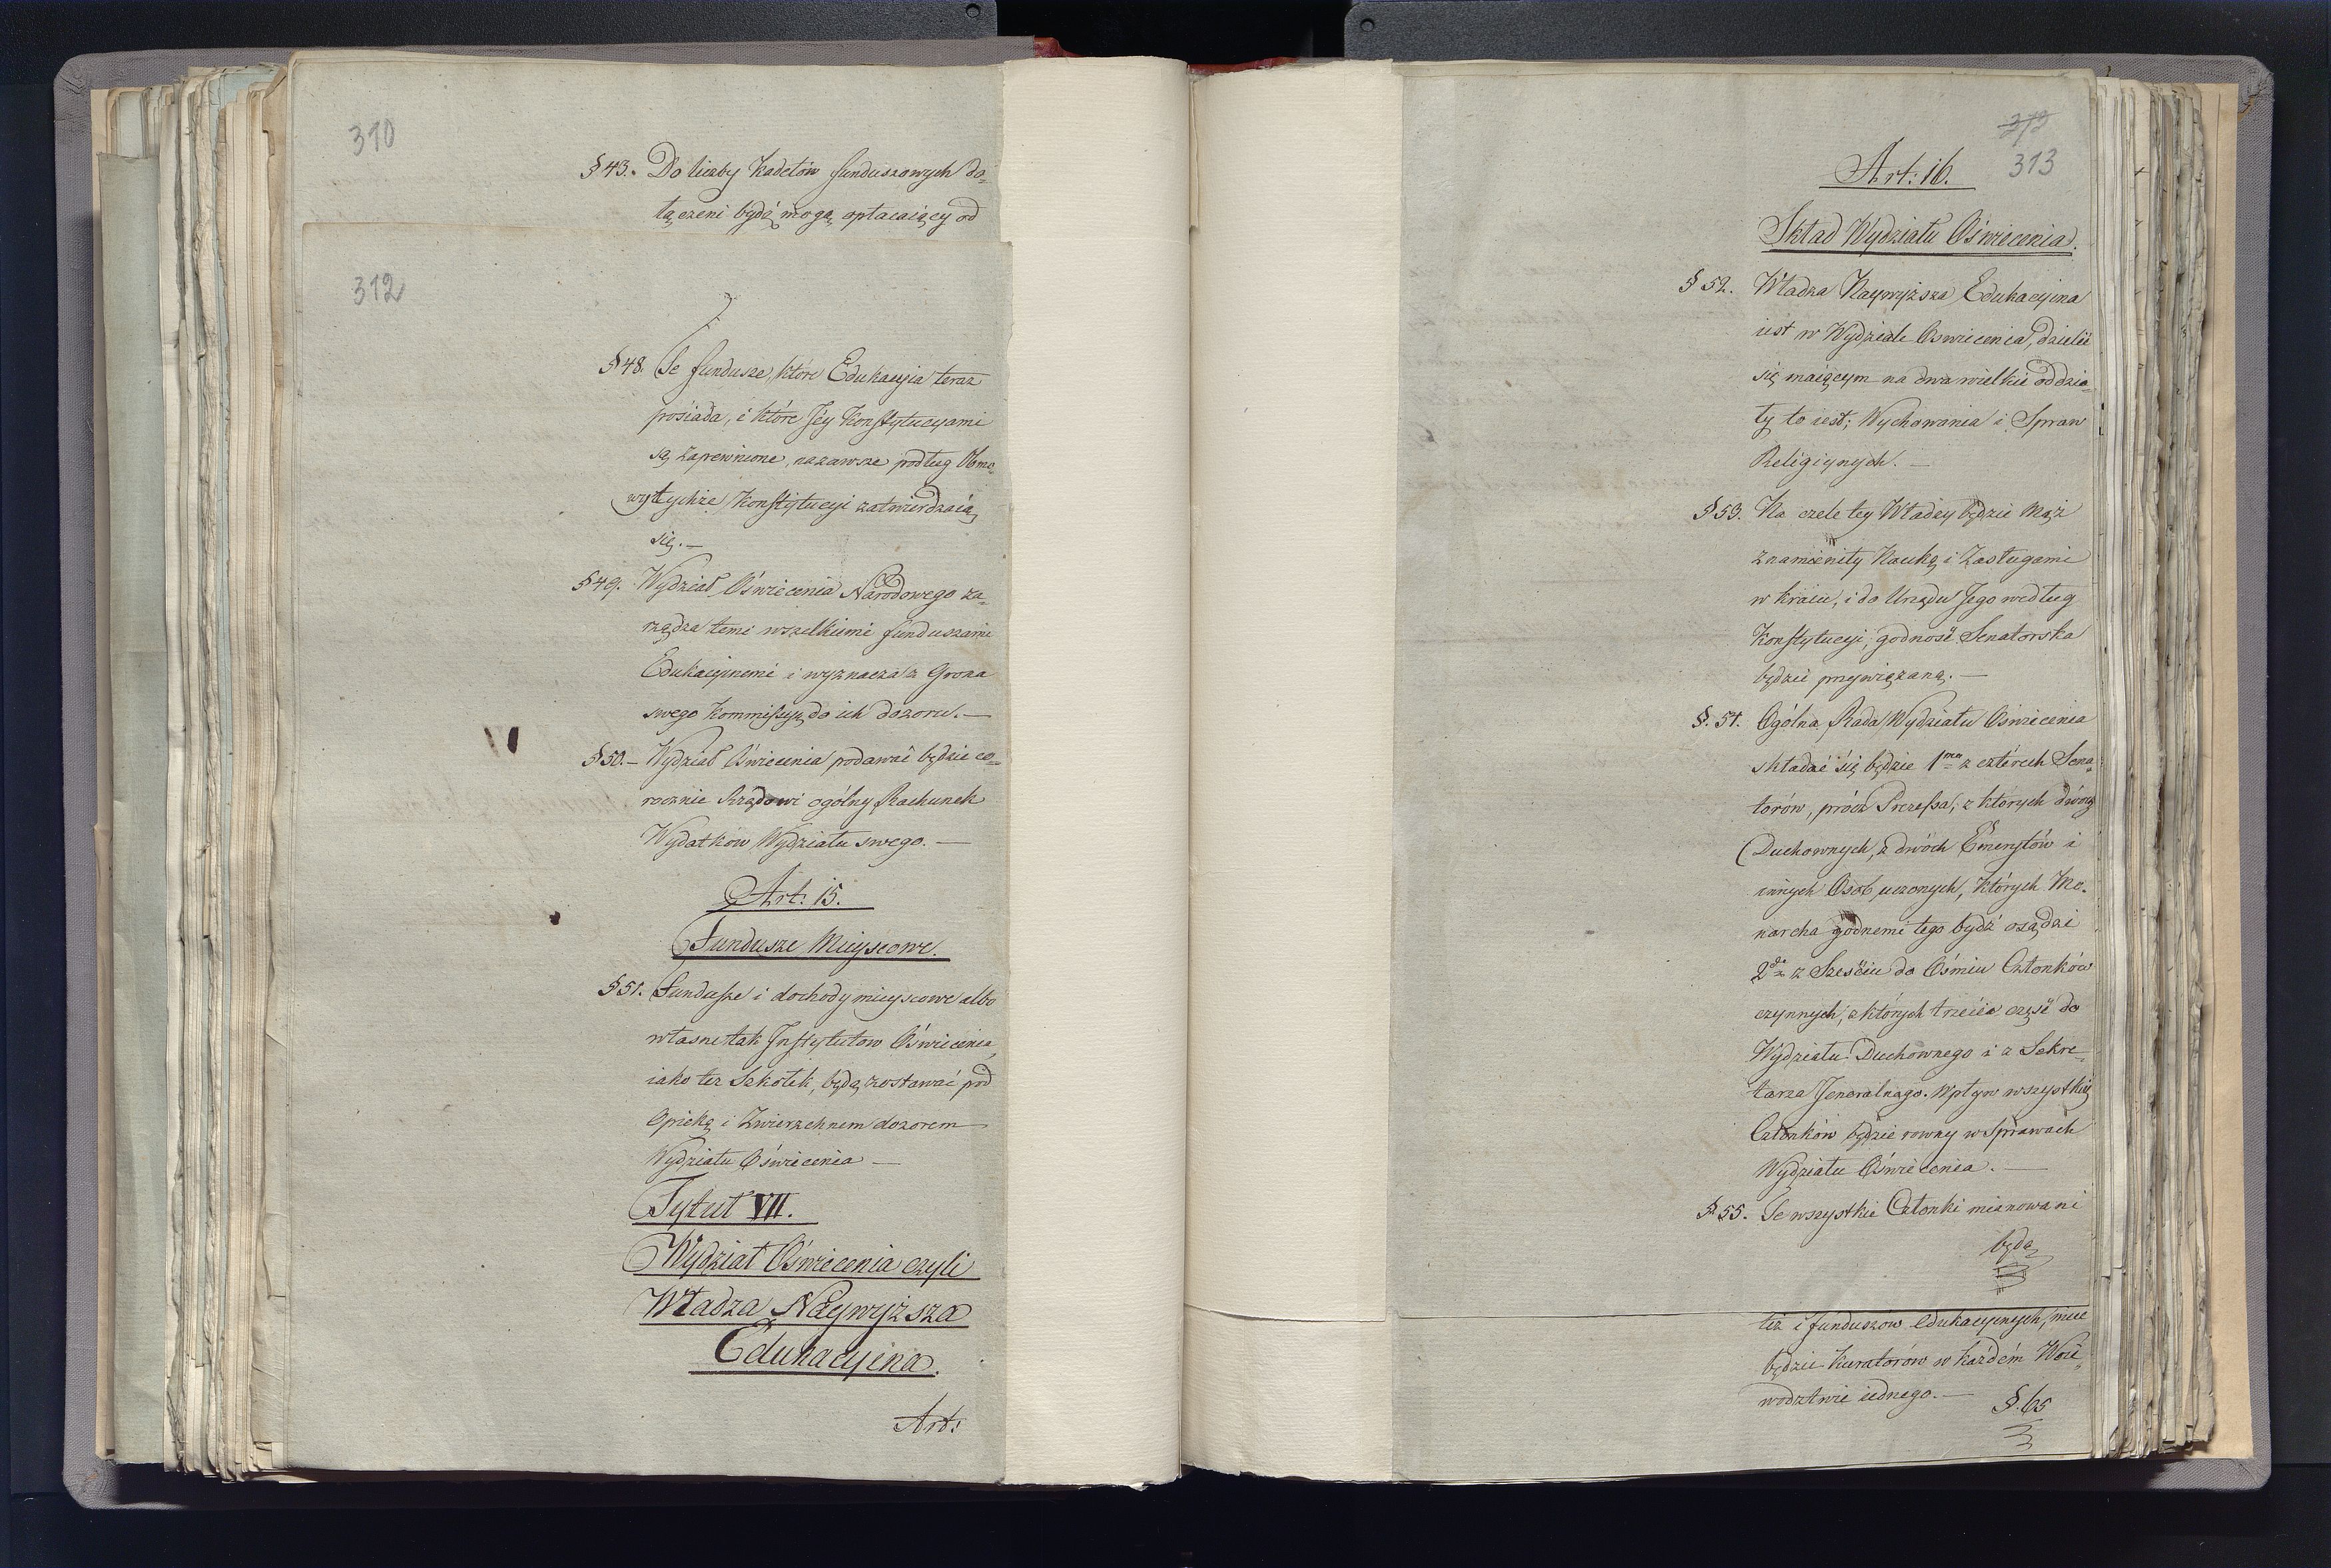 310
§ 43. Do liczby Kadetów funduszowych do=
łączeni bydź mogą opłacaiący od
312
§ 48. Te fundusze, które Edukacyia teraz
posiada, i które Jéy Konstytucyami
są zapewnione, nazawsze podług Obmo
wy tychże Konstytucyi zatwierdzaią
się. —
§ 49. Wydział Oświecenia Narodowego za=
rządza temi wszelkiemi funduszami
Edukacyinemi i wyznacza z Grona
swego Kommissyą do ich dozoru. —
§ 50. — Wydział Oświecenia podawać będzie co=
rocznie Rządowi ogólny Rachunek
Wydatków Wydziału swego. —
Art: 15.
Fundusze Mieyscowe.
§ 51. Fundusze i dochody mieyscowe albo
własne tak Instytutow Oświecenia,
iako też Szkołek, będą zostawać pod
Opieką i Zwierzchnem dozorem
Wydziału Oświecenia —
Tytuł VII.
Wydział Oświecenia czyli
Władza Naywyższa
Edukacyina.
Art:
312
313
Art: 16.
Skład Wydziału Oświecenia.
§ 52. Władza Naywyższa Edukacyina
iest w Wydziale Oswiecenia, dzielić
się maiącym na dwa wielkie oddzia=
ły to iest; Wychowania i Spraw
Religiynych. —
§ 53. Na czele tey Władzy będzie Mąż
znamienity Nauką i Zasługami
w kraiu, i do Urzędu Jego według
Konstytucyi, godność Senatorska
będzie przywiązaną. —
§. 54. Ogólna Rada Wydziału Oświecenia
składać się będzie 1mo z czterech Sena=
torów, prócz Prezessa, z których dwóch
Duchownych, z dwóch Emerytów i
innych Osob uczonych, których Mo=
narcha godnemi tego bydź osądzi
2do z Sześciu do Ośmiu Członków
czynnych, z których trzecia część do
Wydziału Duchownego i z Sekre=
tarza Jeneralnego. Wpływ wszystkich
Członków będzie rowny w Sprawach
Wydziału Oświecenia. —
§ 55. Te wszystkie Członki mianowani
będą
też i funduszow edukacyinych, mieć
będzie Kuratorów w każdém Woie=
wodztwie iednego. —
§. 65